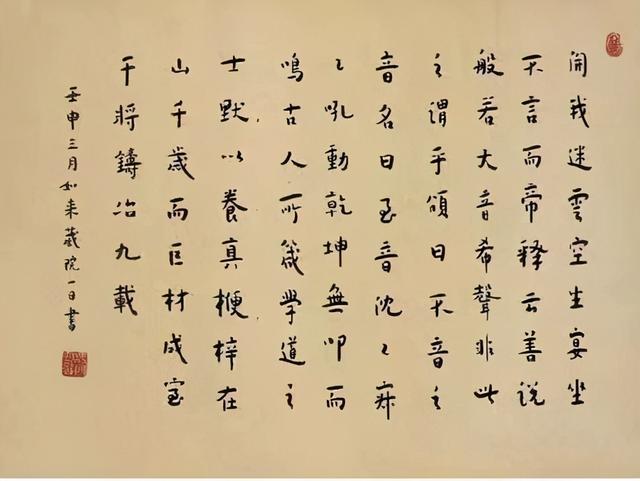 開我迷雲空生宴坐
不言而帝釋云善說
般若大音希聲非此
之謂乎頌曰天音之
音名曰至音沈々寂
々吼動乾坤無叩而
鳴古人所箴學道之
士默以養真楩梓在
山千歲而巨材成室
干將鑄冶九載
壬申三月如來藏院一日書